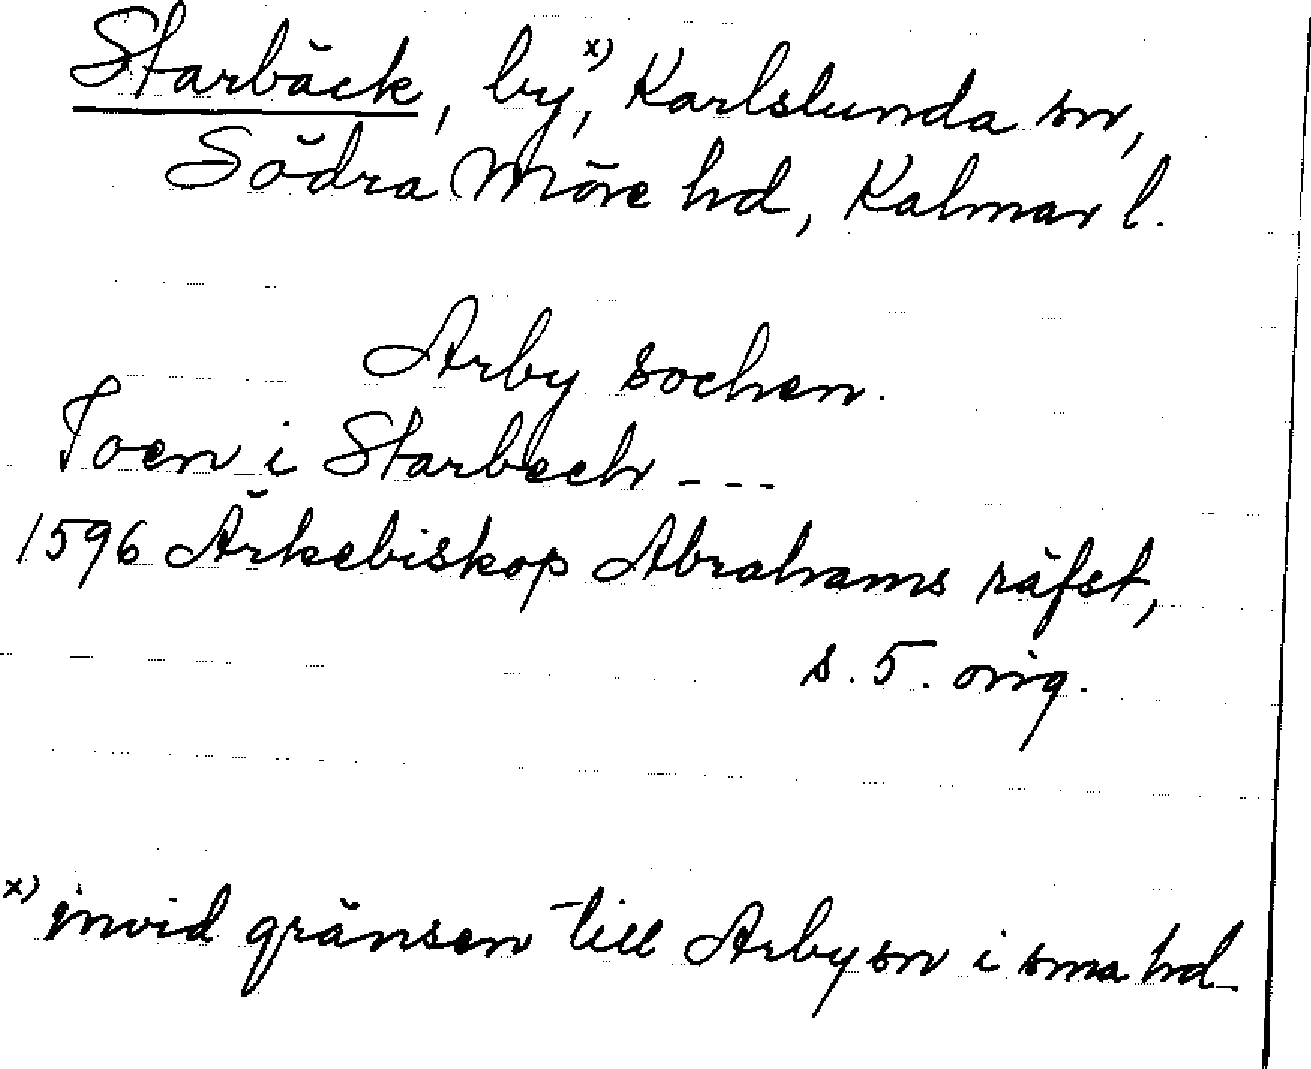 Starbäck, by,x) Karlslunda sn,
Södra Möre hd, Kalmar l.
Arby sochen.
Toen i Starbech ---
1596 Ärkebiskop Abrahams räfst,
s. 5. orig.
x) invid gränsen till Arby sn i sma hd